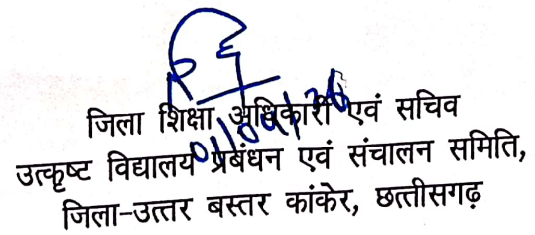 जिला शिक्षा अधिकारी एवं सचिव
01/04/26
उत्कृष्ट विद्यालय प्रबंधन एवं संचालन समिति,
जिला-उत्तर बस्तर कांकेर, छत्तीसगढ़